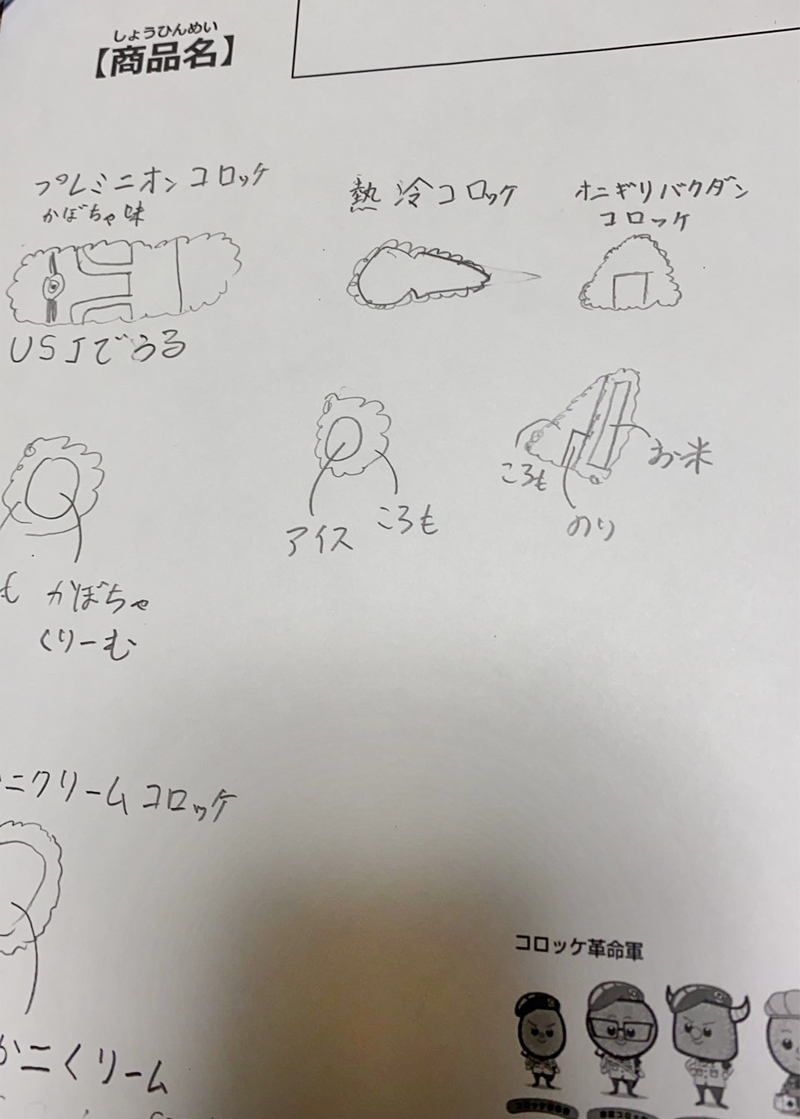 しょうひんめい
【商品名】
プレミニオンコロッケ
かぼちゃ味
USJでうる
熱冷コロッケ
オニギリバクダン
コロッケ
も
かぼちゃ
くりーむ
アイス
ころも
ころも
のり
お米
ニクリームコロッケ
かにくりーム
コロッケ革命軍